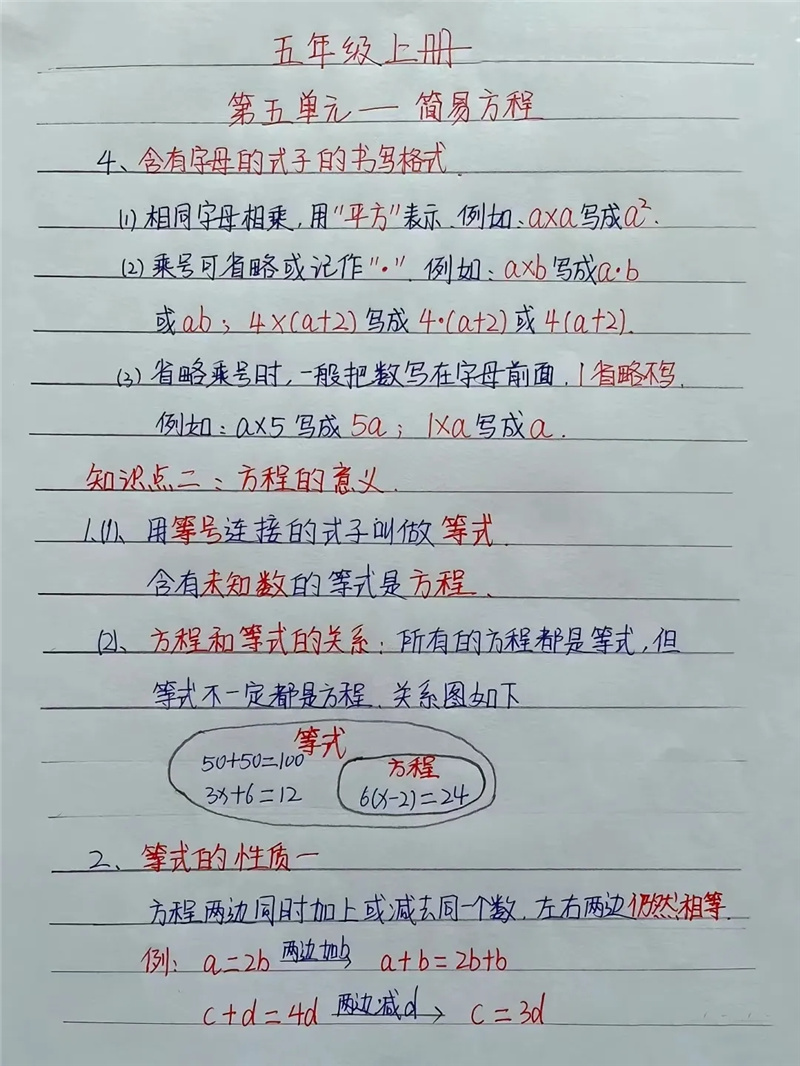 五年级上册
第五单元一 简易方程
4、含有字母的式子的书写格式.
(1)相同字母相乘,用"平方"表示.例如:a×a写成a².
(2)乘号可省略或记作"·".例如:a×b写成a·b
或ab;4×(a+2)写成4·(a+2)或4(a+2).
(3)省略乘号时,一般把数写在字母前面.1省略不写.
例如:a×5写成5a;1×a写成a.
知识点二:方程的意义.
1.(1)、用等号连接的式子叫做等式.
含有未知数的等式是方程.
(2)、方程和等式的关系:所有的方程都是等式,但
等式不一定都是方程.关系图如下
等式
50+50=100
方程
3x+6=12 6(x-2)=24
2、等式的性质一
方程两边同时加上或减去同一个数.左右两边仍然相等.
例:a=2b 两边加b → a+b=2b+b
c+d=4d 两边减d → c=3d